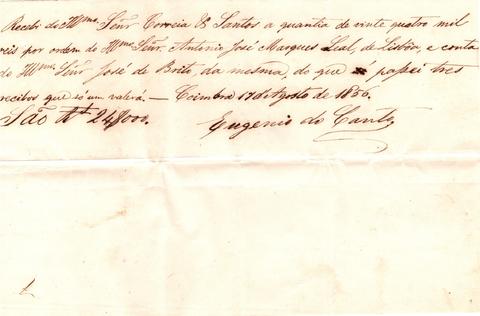 Recebi do Illmo. Señr. Correia & Santos a quantia de vinte quatro mil
reis por ordem do Illmo. Señr. António José Marques Leal, de Lisboa, e conta
do Illmo. Señr. José de Brito, da mesma, do que passei tres
recibos que só um valerá. — Coimbra 17 de Agosto de 1856.
São Rs 24$000.
Eugenio do Canto